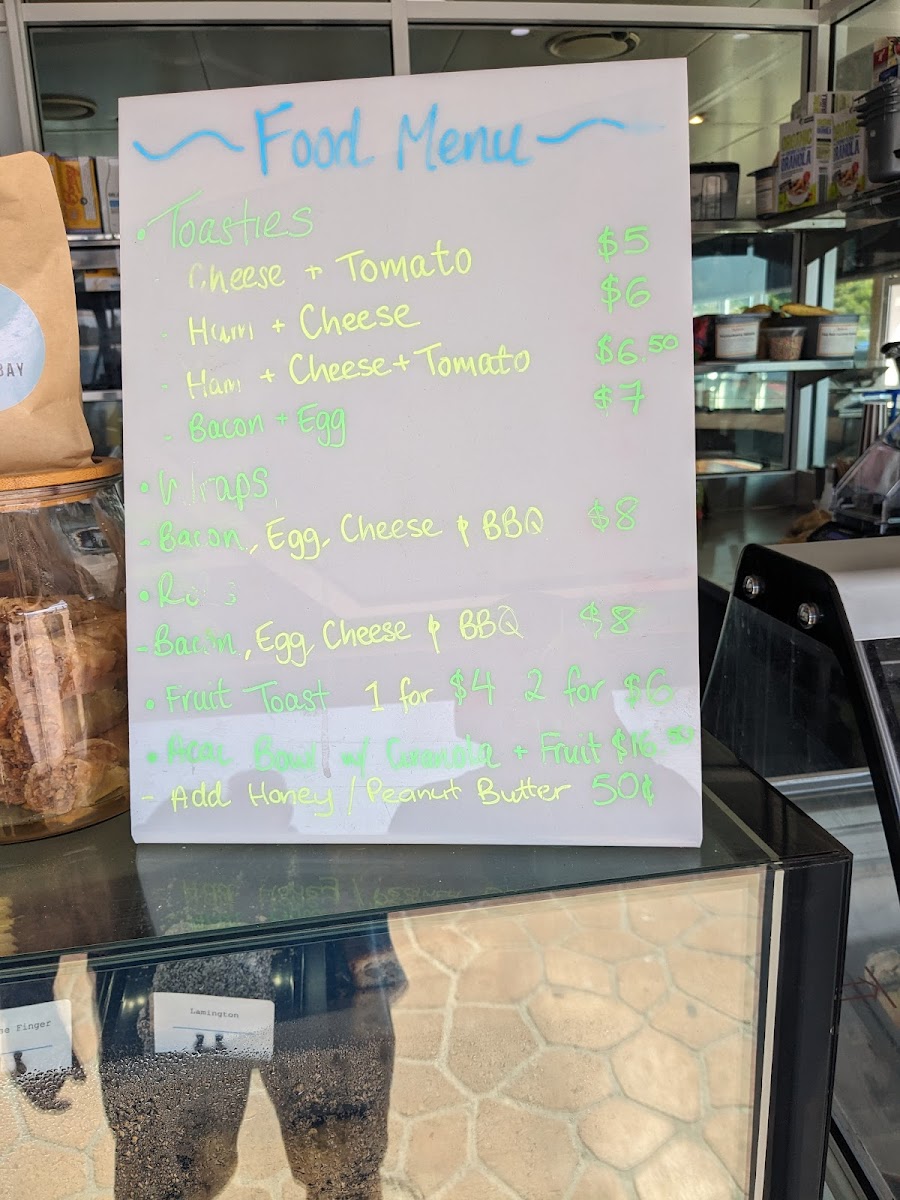 Food Menu
• Toasties
- Cheese + Tomato $5
- Ham + Cheese $6
- Ham + Cheese + Tomato $6.50
- Bacon + Egg $7
• Wraps
- Bacon, Egg, Cheese & BBQ $8
• Rolls
- Bacon, Egg, Cheese & BBQ $8
• Fruit Toast 1 for $4 2 for $6
• Acai Bowl w/ Granola + Fruit $16.50
- Add Honey / Peanut Butter 50¢
BAY
ORGANIC
GRANOLA
Finger
Lamington